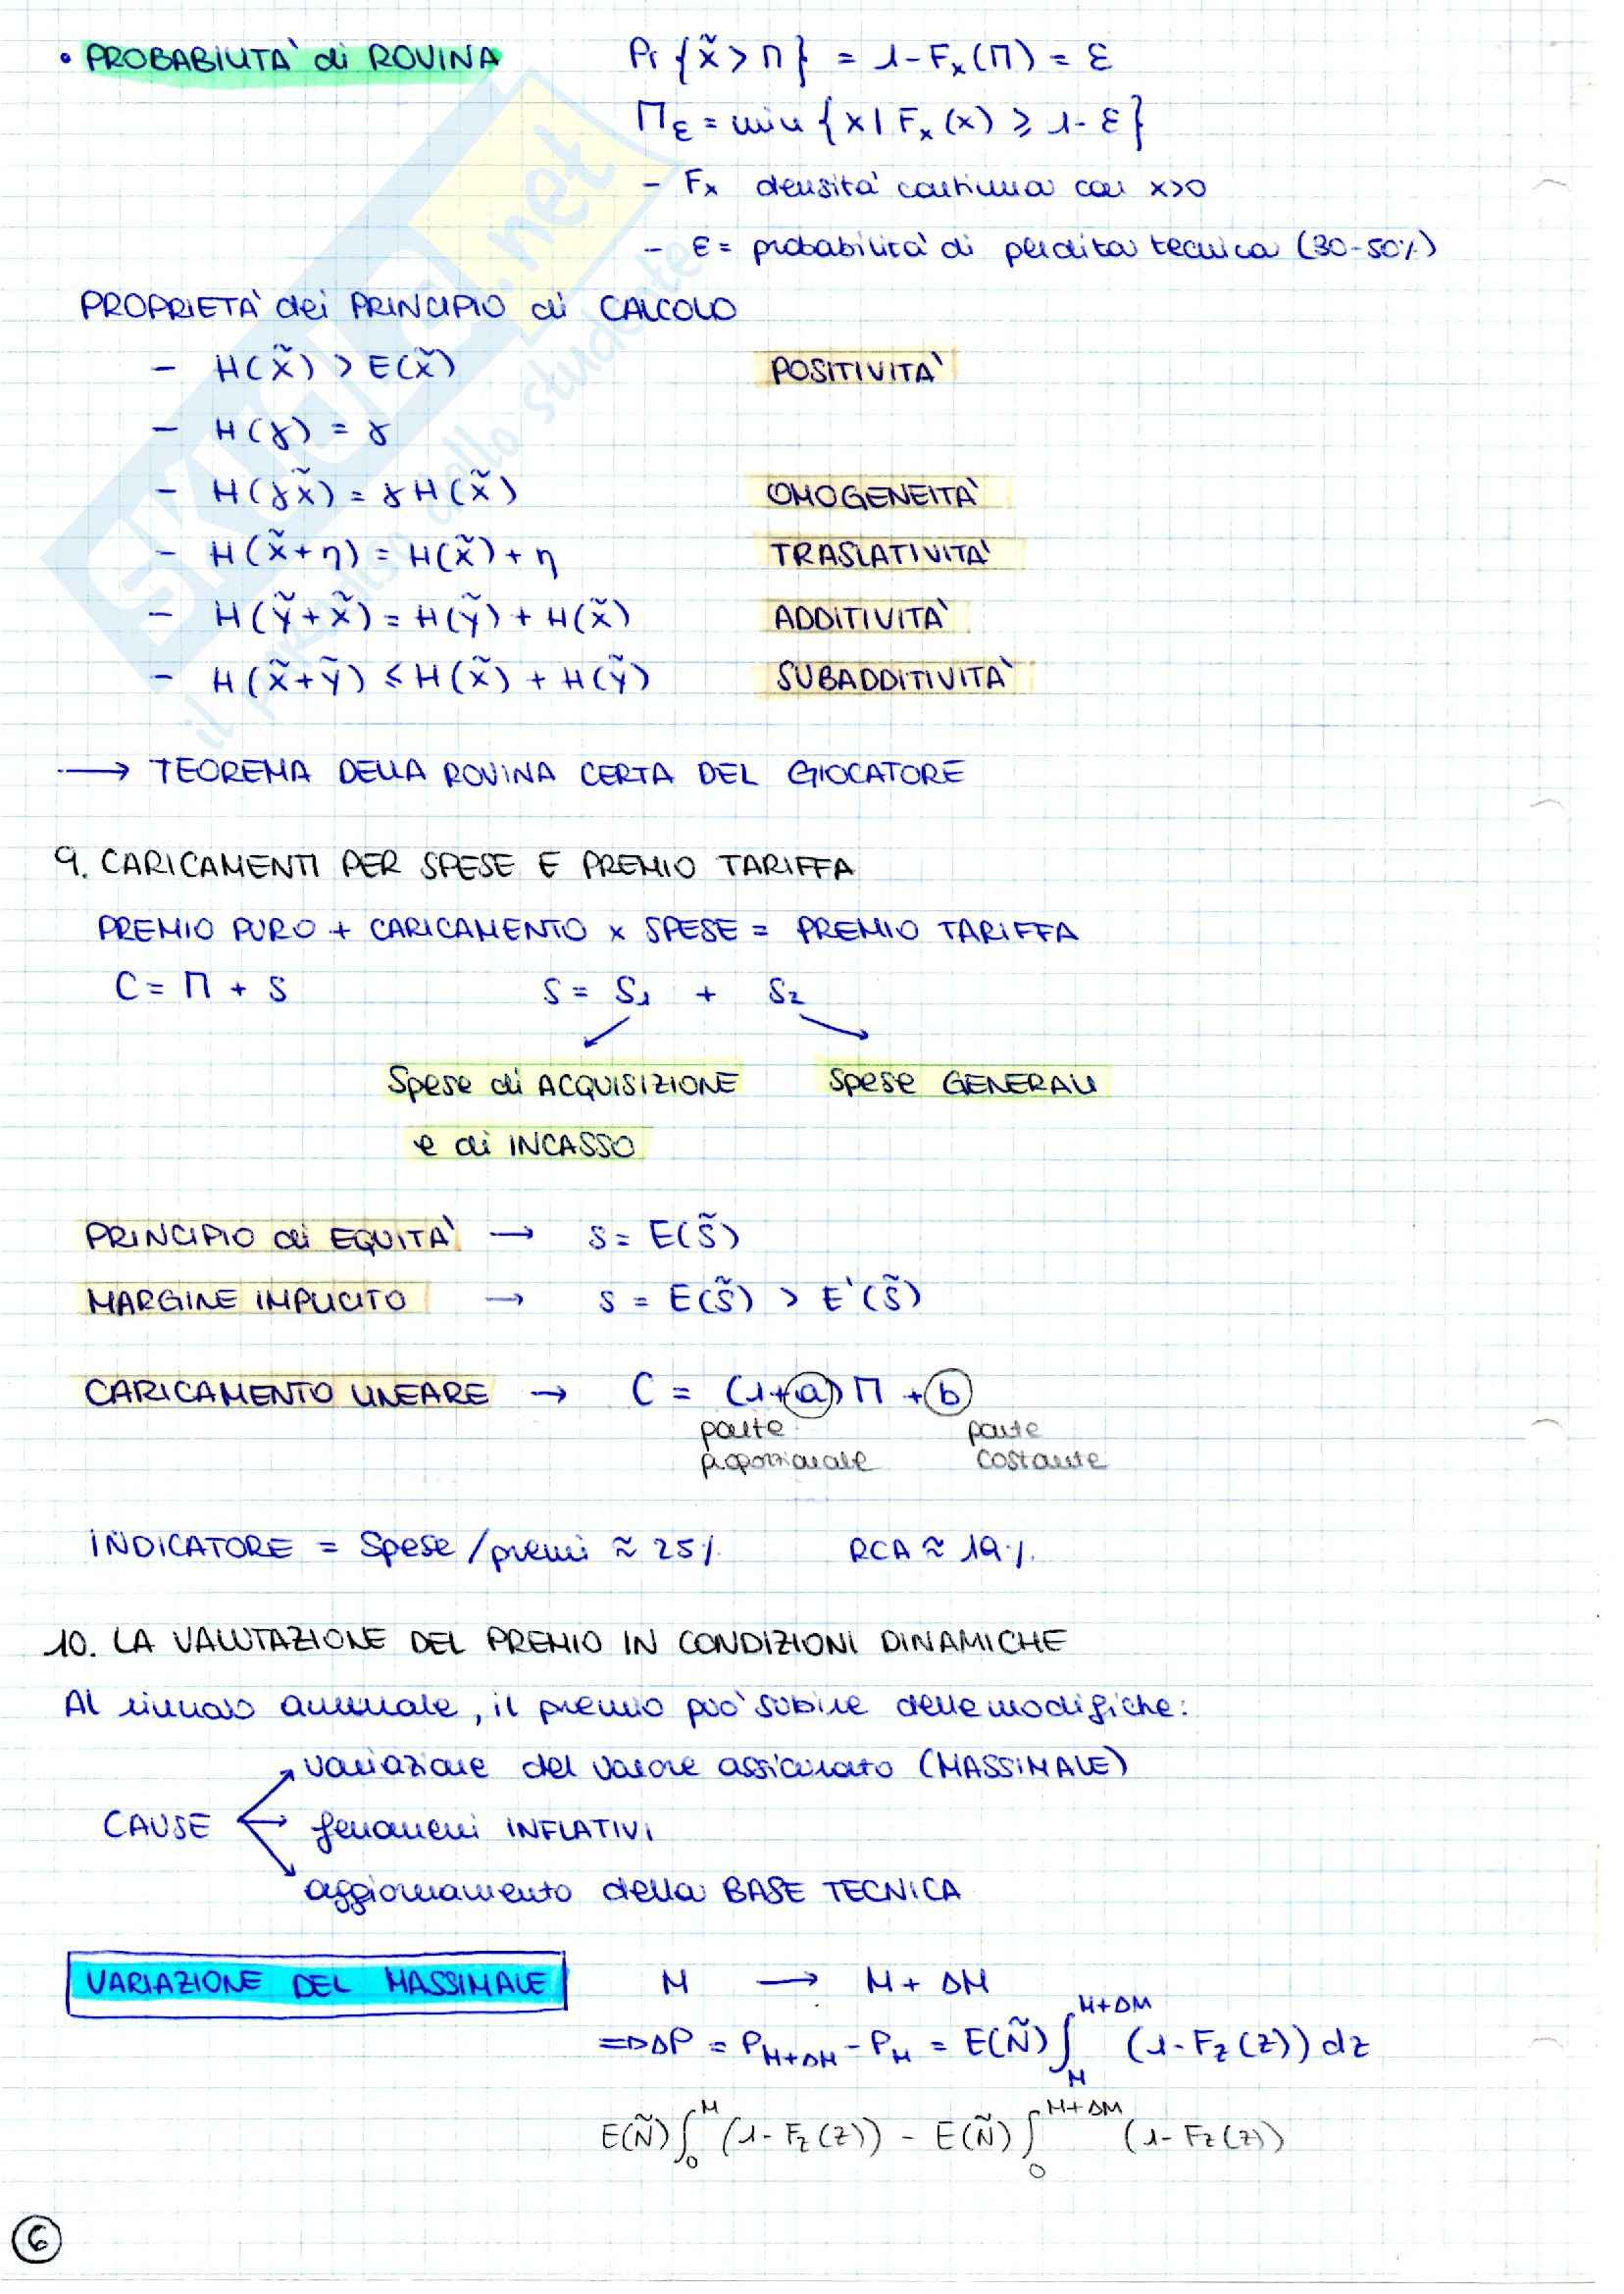 • PROBABILITA' di ROVINA Pr {x̃ > Π} = 1-Fx(Π) = ε
Πε = min {x | Fx(x) ⩾ 1-ε}
- Fx densita' continua con x>0
- ε = probabilita' di perdita tecnica (30-50%)
PROPRIETA' dei PRINCIPIO di CALCOLO
- H(x̃) > E(x̃) POSITIVITA'
- H(γ) = γ
- H(γx̃) = γH(x̃) OMOGENEITA'
- H(x̃+η) = H(x̃)+η TRASLATIVITA'
- H(ỹ+x̃) = H(ỹ) + H(x̃) ADDITIVITA'
- H(x̃+ỹ) ⩽ H(x̃) + H(ỹ) SUBADDITIVITA'
→ TEOREMA DELLA ROVINA CERTA DEL GIOCATORE
9. CARICAMENTI PER SPESE E PREMIO TARIFFA
PREMIO PURO + CARICAMENTO x SPESE = PREMIO TARIFFA
C = Π + S S = S1 + S2
Spese di ACQUISIZIONE Spese GENERALI
e di INCASSO
PRINCIPIO di EQUITA' → S = E(S̃)
MARGINE IMPLICITO → S = E(S̃) > E'(S̃)
CARICAMENTO LINEARE → C = (1+a)Π + b
parte parte
proporzionale costante
INDICATORE = Spese/premi ≈ 25% RCA ≈ 19%
10. LA VALUTAZIONE DEL PREMIO IN CONDIZIONI DINAMICHE
Al rinnovo annuale, il premio puo' subire delle modifiche:
variazione del valore assicurato (MASSIMALE)
CAUSE fenomeni INFLATIVI
aggiornamento della BASE TECNICA
VARIAZIONE DEL MASSIMALE M → M + ΔM
⇒ ΔP = P_{M+ΔM} - P_M = E(Ñ) ∫_M^{M+ΔM} (1-Fz(z)) dz
E(Ñ) ∫_0^M (1-Fz(z)) - E(Ñ) ∫_0^{M+ΔM} (1-Fz(z))
6
SKUOLA.net
il paradiso dello studente